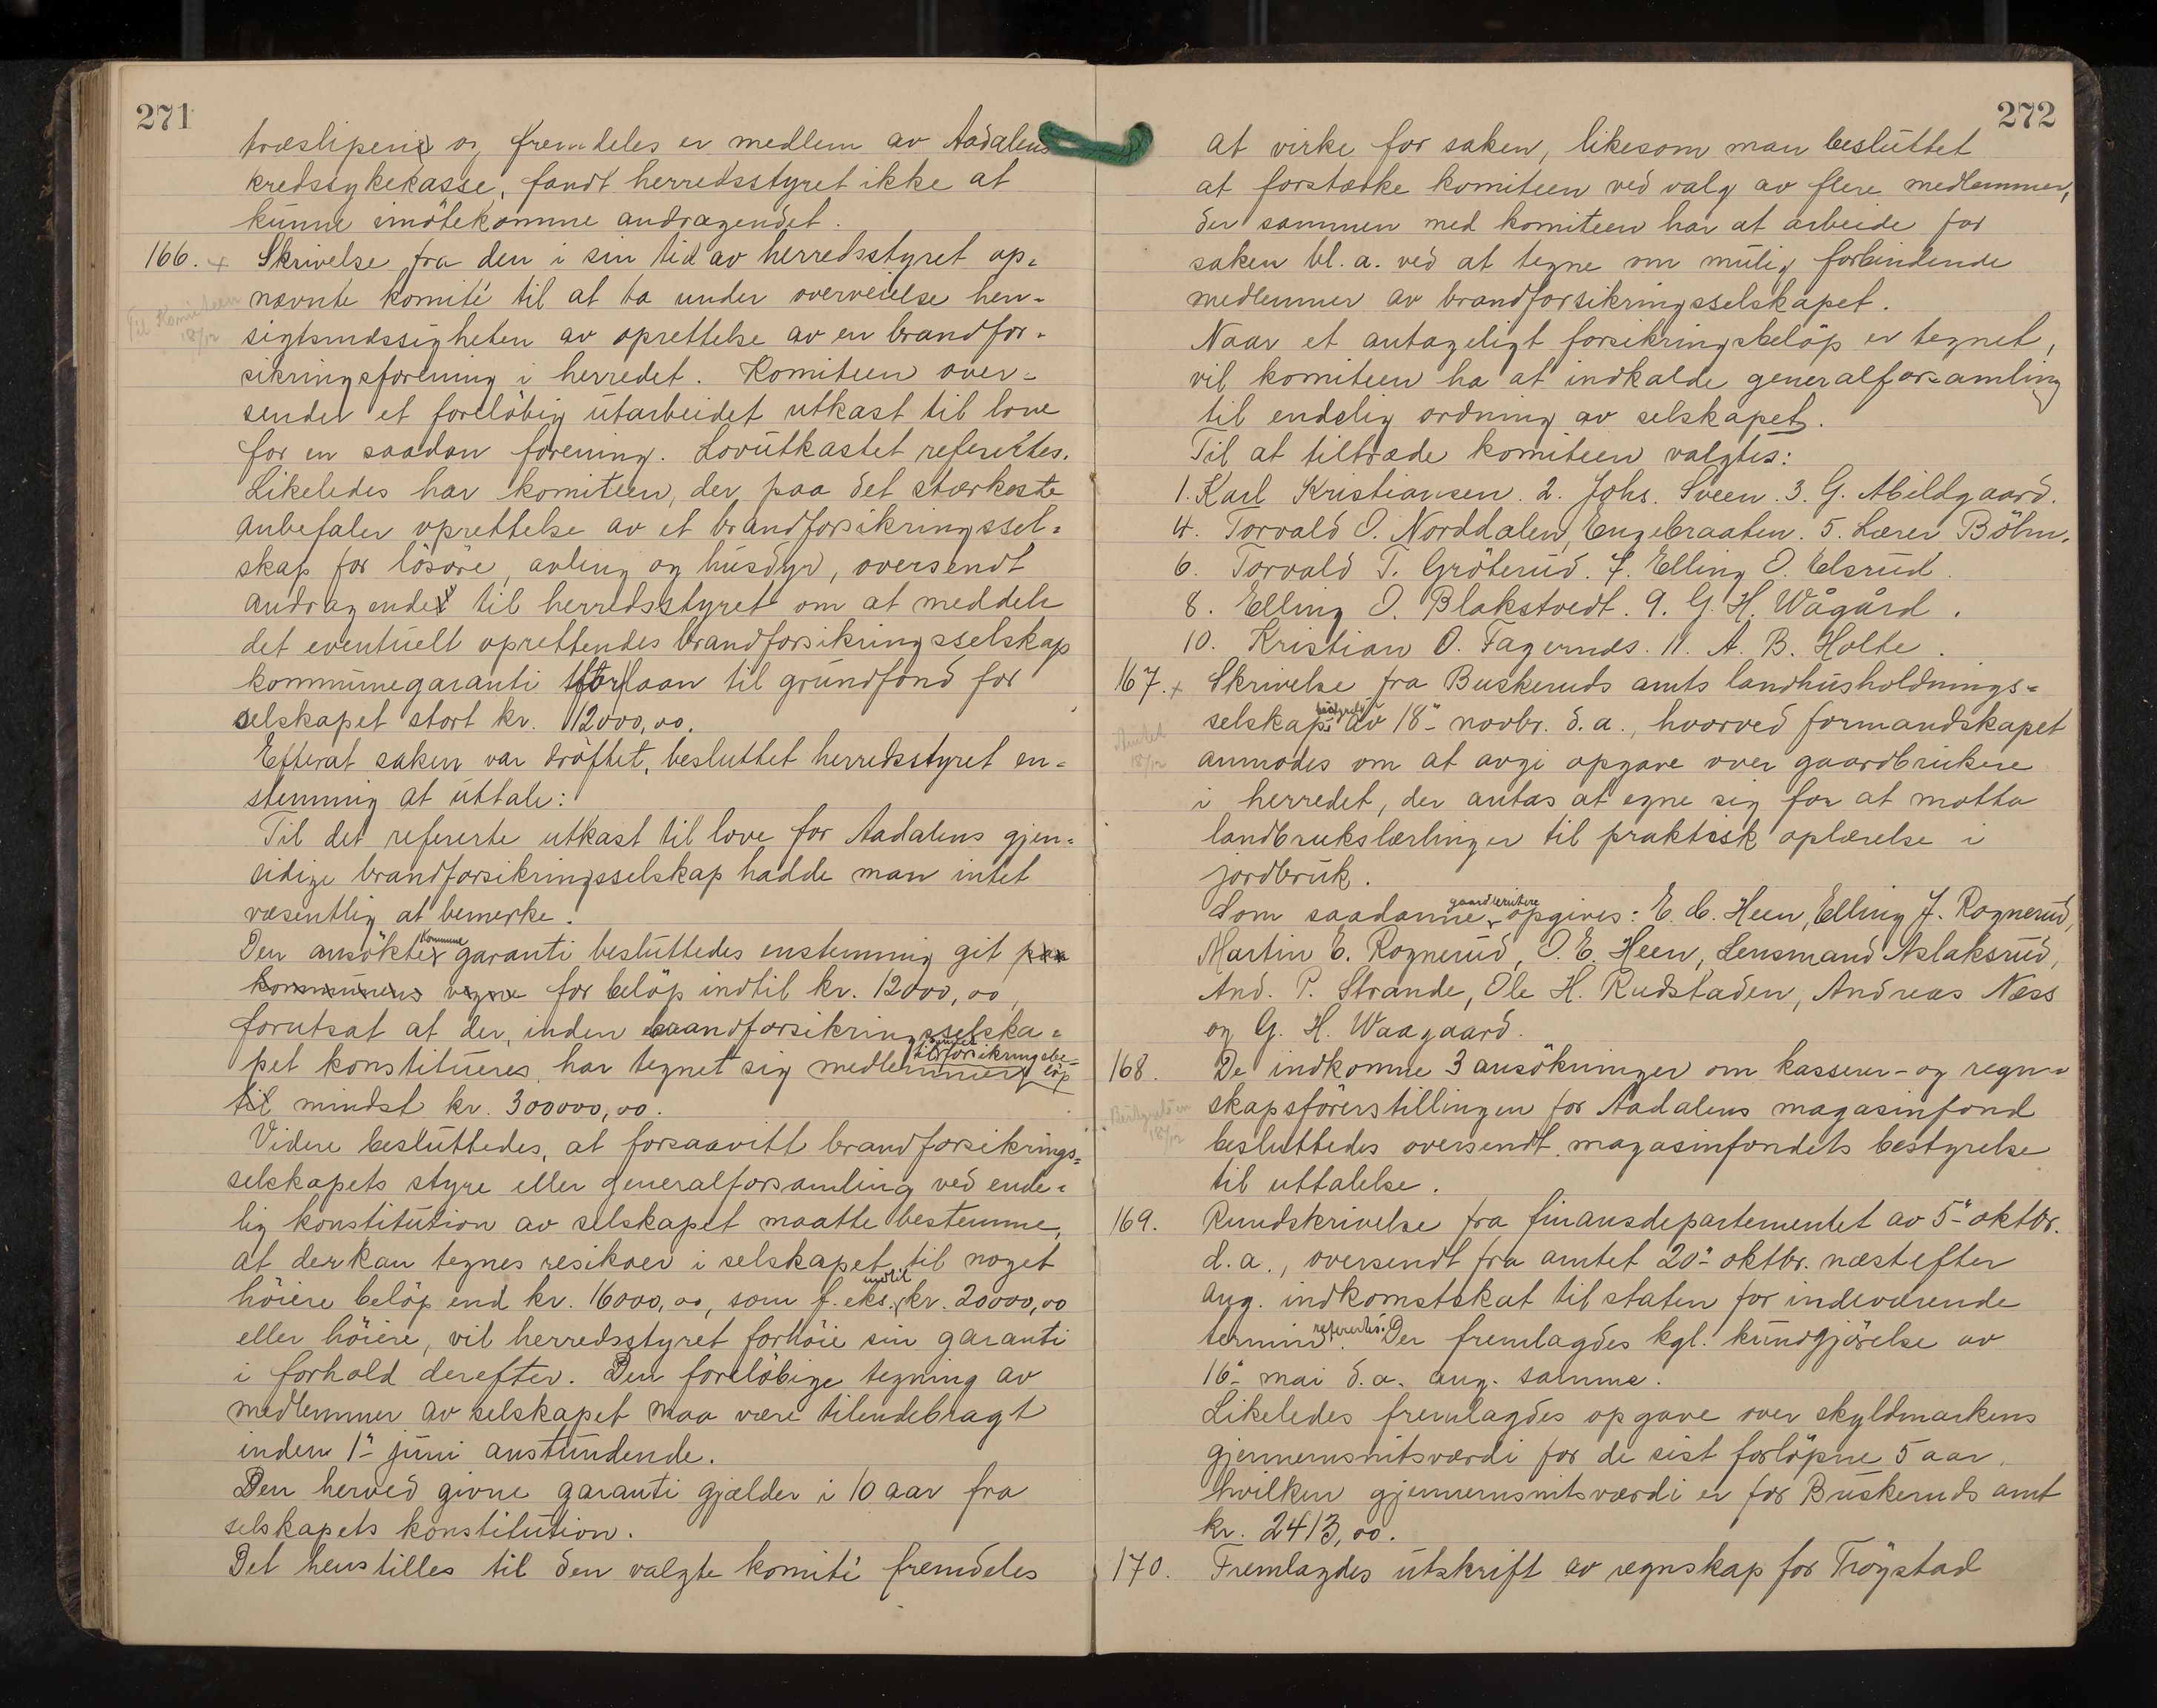 271
træsliperi og fremdeles er medlem av Aadalens
kredssykekasse, fandt herredsstyret ikke at
kunne imötekomme andragendet.
166. Skrivelse fra den i sin tid av herredsstyret op-
nævnte komité til at ta under overveielse hen-
Til Komiteen
18/12
sigtsmæssigheten av oprettelse av en brandfor-
sikringsforening i herredet. Komiteen over-
sender et foreløbig utarbeidet utkast til love
for en saadan forening. Lovutkastet refertes.
Likeledes har komiteen, der paa det stærkeste
anbefaler oprettelse av et brandforsikringssel-
skap for lösöre, avling og husdyr, oversendt
andragende til herredsstyret om at meddele
det eventuelt oprettendes brandforsikringsselskap
kommunegaranti for laan til grundfond for
selskapet stort kr. 12000,00.
Efterat saken var dröftet, besluttet herredsstyret en-
stemmig at uttale:
Til det refererte utkast til love for Aadalens gjen-
sidige brandforsikringsselskap hadde man intet
væsentlig at bemerke.
Den ansökte kommune garanti besluttedes enstemmig git paa
kommunens vegne for belöp indtil kr. 12000,00,
forutsat at der, inden brandforsikringsselska-
pet konstitueres, har tegnet sig medlemmer forsikringsbe-
löp
til mindst kr. 300000,00.
Videre besluttedes, at forsaavitt brandforsikrings-
selskapets styre eller generalforsamling ved ende-
lig konstitution av selskapet maatte bestemme,
at der kan tegnes resikoer i selskapet til noget
höiere belöp end kr. 16000,00, som f. eks. indtil kr. 20000,00
eller höiere, vil herredsstyret forhöie sin garanti
i forhold derefter. Den foreløbige tegning av
medlemmer av selskapet maa være tilendebragt
inden 1ʺ juni anstundende.
Den herved givne garanti gjælder i 10 aar fra
selskapets konstitution.
Det henstilles til den valgte komité fremdeles
272
at virke for saken, likesom man besluttet
at forstærke komiteen ved valg av flere medlemmer,
der sammen med komiteen har at arbeide for
saken bl. a. ved at tegne om mulig forbindende
medlemmer av brandforsikringsselskapet.
Naar et antageligt forsikringsbelöp er tegnet,
vil komiteen ha at indkalde generalforsamling
til endelig ordning av selskapet.
Til at tiltræde komiteen valgtes:
1. Karl Kristiansen. 2. Johs. Sveen. 3. G. Abildgaard.
4. Torvald O. Norddalen, Engebraaten. 5. Lærer Böhn.
6. Torvald T. Gröterud. 7. Elling O. Elsrud.
8. Elling O. Blakstvedt. 9. G. H. Wågård.
10. Kristian O. Fagernæs. 11. A. B. Holte.
167. Skrivelse fra Buskeruds amts landhusholdnings-
selskaps av 18ʺ novbr. d. a., hvorved formandskapet
Amtet
18/12
anmodes om at avgi opgave over gaardbrukere
i herredet, der antas at egne sig for at motta
landbrukslærlinger til praktisk oplærelse i
jordbruk.
Som saadanne gaardbrukere opgives: E. C. Heen, Elling J. Rognerud,
Martin E. Rognerud, O. E. Heen, Lensmand Aslaksrud,
And. P. Strande, Ole H. Rudstaden, Andreas Næss
og G. H. Waagaard.
168. De indkomne 3 ansökninger om kasserer- og regn-
skapsförerstillingen for Aadalens magasinfond
18/12
besluttedes oversendt magasinfondets bestyrelse
til uttalelse.
169. Rundskrivelse fra finansdepartementet av 5ʺ oktbr.
d. a., oversendt fra amtet 20ʺ oktbr. næstefter
ang. indkomstskat til staten for indeværende
termin refertes. Der fremlagdes kgl. kundgjörelse av
16ʺ mai d. a. ang. samme.
Likeledes fremlagdes opgave over skyldmarkens
gjennemsnitsværdi for de sist forlöpne 5 aar,
hvilken gjennemsnitsværdi er for Buskeruds amt
kr. 2413,00.
170. Fremlagdes utskrift av regnskap for Trögstad